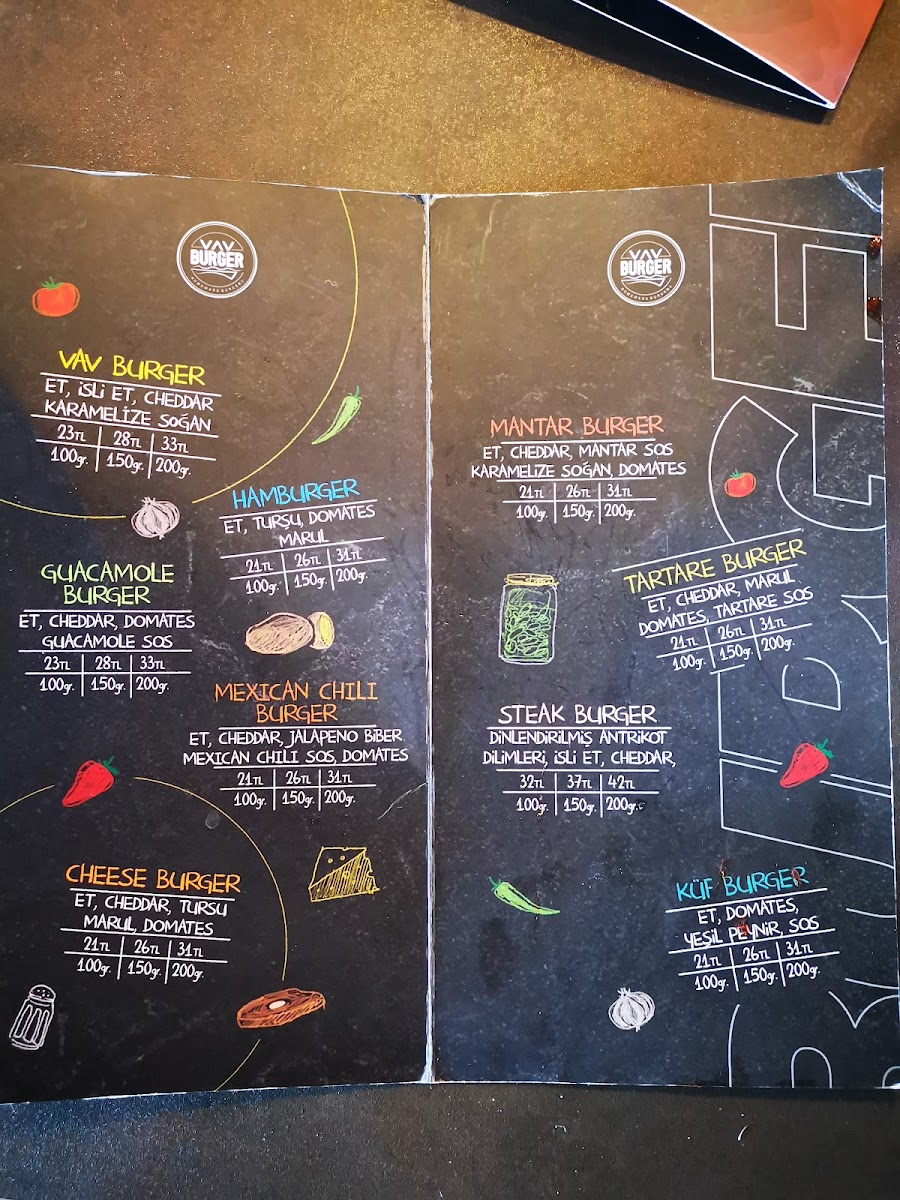 VAV
BURGER
HOMEMADE BURGERS
VAV BURGER
ET, iSLi ET, CHEDDAR
KARAMELİZE SOĞAN
23TL 28TL 33TL
100gr. 150gr. 200gr.
HAMBURGER
ET, TURŞU, DOMATES
MARUL
21TL 26TL 31TL
100gr. 150gr. 200gr.
GUACAMOLE
BURGER
ET, CHEDDAR, DOMATES
GUACAMOLE SOS
23TL 28TL 33TL
100gr. 150gr. 200gr.
MEXICAN CHILI
BURGER
ET, CHEDDAR, JALAPENO BiBER
MEXICAN CHILI SOS, DOMATES
21TL 26TL 31TL
100gr. 150gr. 200gr.
CHEESE BURGER
ET, CHEDDAR, TURSU
MARUL, DOMATES
21TL 26TL 31TL
100gr. 150gr. 200gr.
VAV
BURGER
HOMEMADE BURGERS
MANTAR BURGER
ET, CHEDDAR, MANTAR SOS
KARAMELIZE SOĞAN, DOMATES
21TL 26TL 31TL
100gr. 150gr. 200gr.
TARTARE BURGER
ET, CHEDDAR, MARUL
DOMATES, TARTARE SOS
21TL 26TL 31TL
100gr. 150gr. 200gr.
STEAK BURGER
DiNLENDiRiLMiŞ ANTRiKOT
DiLiMLERi, iSLi ET, CHEDDAR,
32TL 37TL 42TL
100gr. 150gr. 200gr.
KÜF BURGER
ET, DOMATES,
YEŞiL PEYNiR, SOS
21TL 26TL 31TL
100gr. 150gr. 200gr.
BURGER